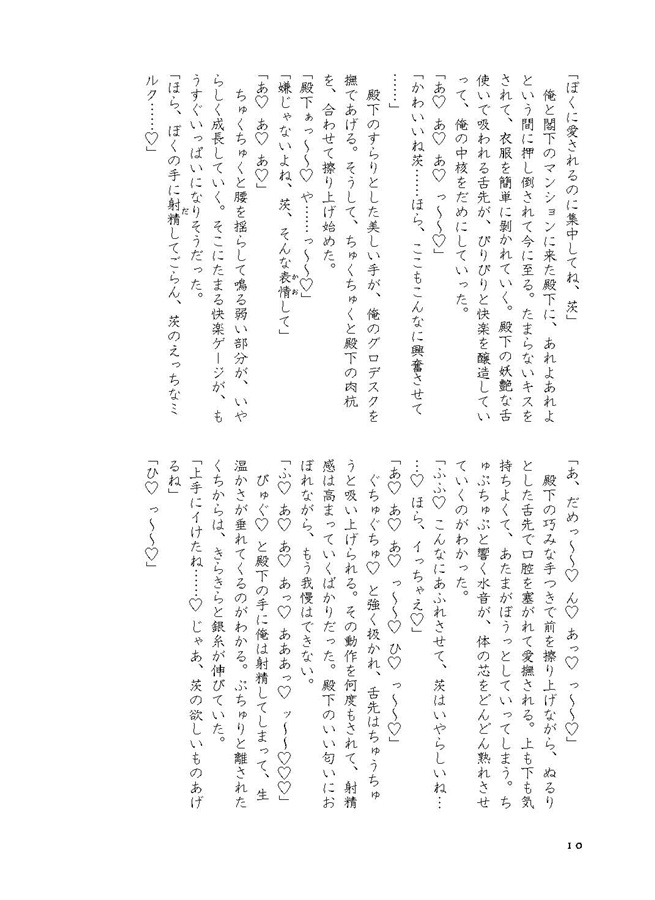 「ぼくに愛されるのに集中してね、茨」
俺と閣下のマンションに来た殿下に、あれよあれよ
という間に押し倒されて今に至る。たまらないキスを
されて、衣服を簡単に剥かれていく。殿下の妖艶な舌
使いで吸われる舌先が、ぴりぴりと快楽を醸造してい
って、俺の中核をだめにしていった。
「あ♡ あ♡ あ♡ っ～～♡」
「かわいいね茨……ほら、ここもこんなに興奮させて
……」
殿下のすらりとした美しい手が、俺のグロデスクを
撫であげる。そうして、ちゅくちゅくと殿下の肉杭
を、合わせて擦り上げ始めた。
「殿下ぁっ～～♡ や……っ～～♡」
「嫌じゃないよね、茨、そんな表情して」
かお
「あ♡ あ♡ あ♡」
ちゅくちゅくと腰を揺らして鳴る弱い部分が、いや
らしく成長していく。そこにたまる快楽ゲージが、も
うすぐいっぱいになりそうだった。
「ほら、ぼくの手に射精してごらん、茨のえっちなミ
だ
ルク……♡」
「あ、だめっ～～♡ ん♡ あっ♡ っ～～♡」
殿下の巧みな手つきで前を擦り上げながら、ぬるり
とした舌先で口腔を塞がれて愛撫される。上も下も気
持ちよくて、あたまがぼうっとしていってしまう。ち
ゅぷちゅぷと響く水音が、体の芯をどんどん熟れさせ
ていくのがわかった。
「ふふ♡ こんなにあふれさせて、茨はいやらしいね…
…♡ ほら、イっちゃえ♡」
「あ♡ あ♡ あ♡ っ～～♡ ひ♡ っ～～♡」
ぐちゅぐちゅ♡ と強く扱かれ、舌先はちゅうちゅ
うと吸い上げられる。その動作を何度もされて、射精
感は高まっていくばかりだった。殿下のいい匂いにお
ぼれながら、もう我慢はできない。
「ふ♡ あ♡ あ♡ あっ♡ あああっ♡ ッ～～♡♡♡」
びゅぐ♡ と殿下の手に俺は射精してしまって、生
温かさが垂れてくるのがわかる。ぷちゅりと離された
くちからは、きらきらと銀糸が伸びていた。
「上手にイけたね……♡ じゃあ、茨の欲しいものあげ
るね」
「ひ♡ っ～～♡」
10